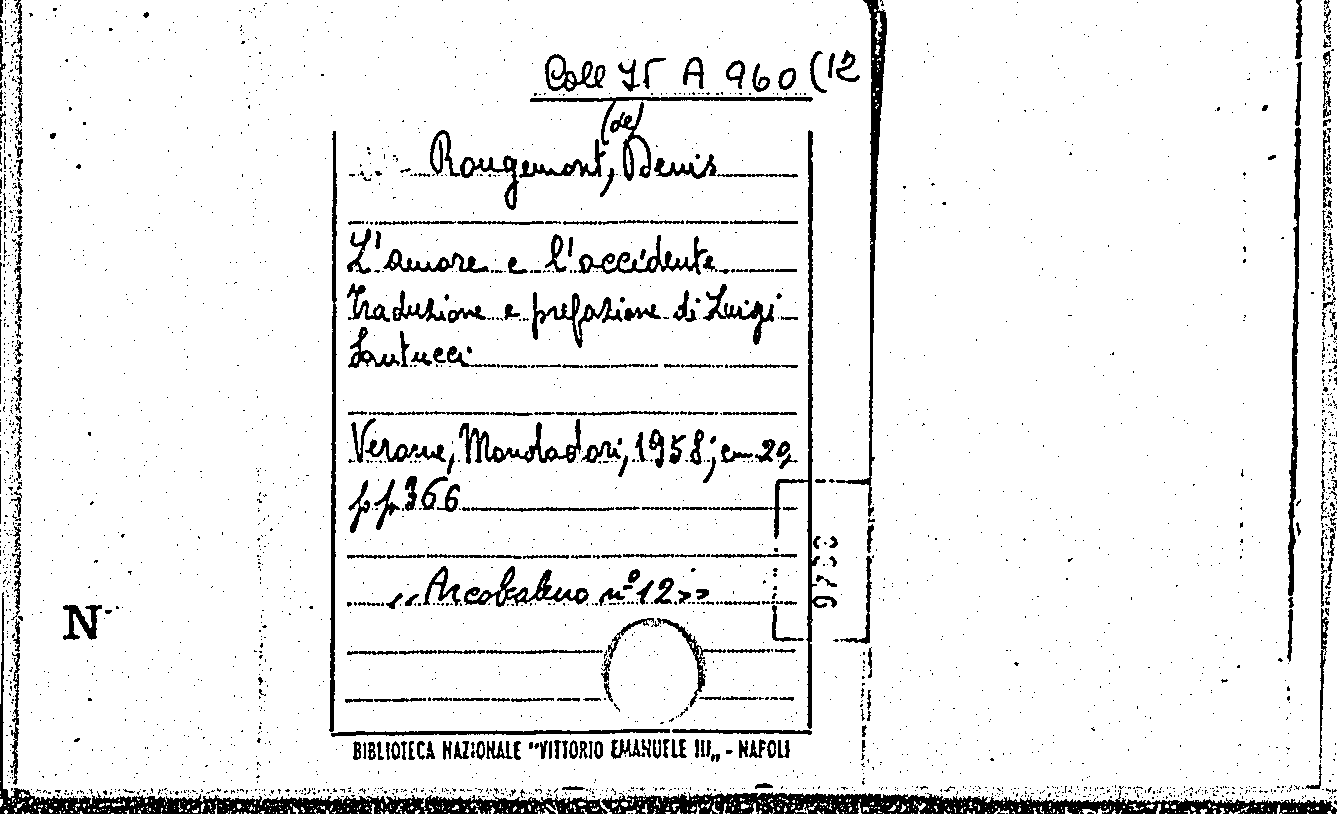 Coll IT A 960 (12
(de)
Rougemont, Denis
L'amore e l'occidente
Traduzione e prefazione di Luigi
Santucci
Verona, Mondadori, 1958; cm 20,
pp. 366
„Arcobaleno n° 12»
N
BIBLIOTECA NAZIONALE "VITTORIO EMANUELE III„ - NAPOLI